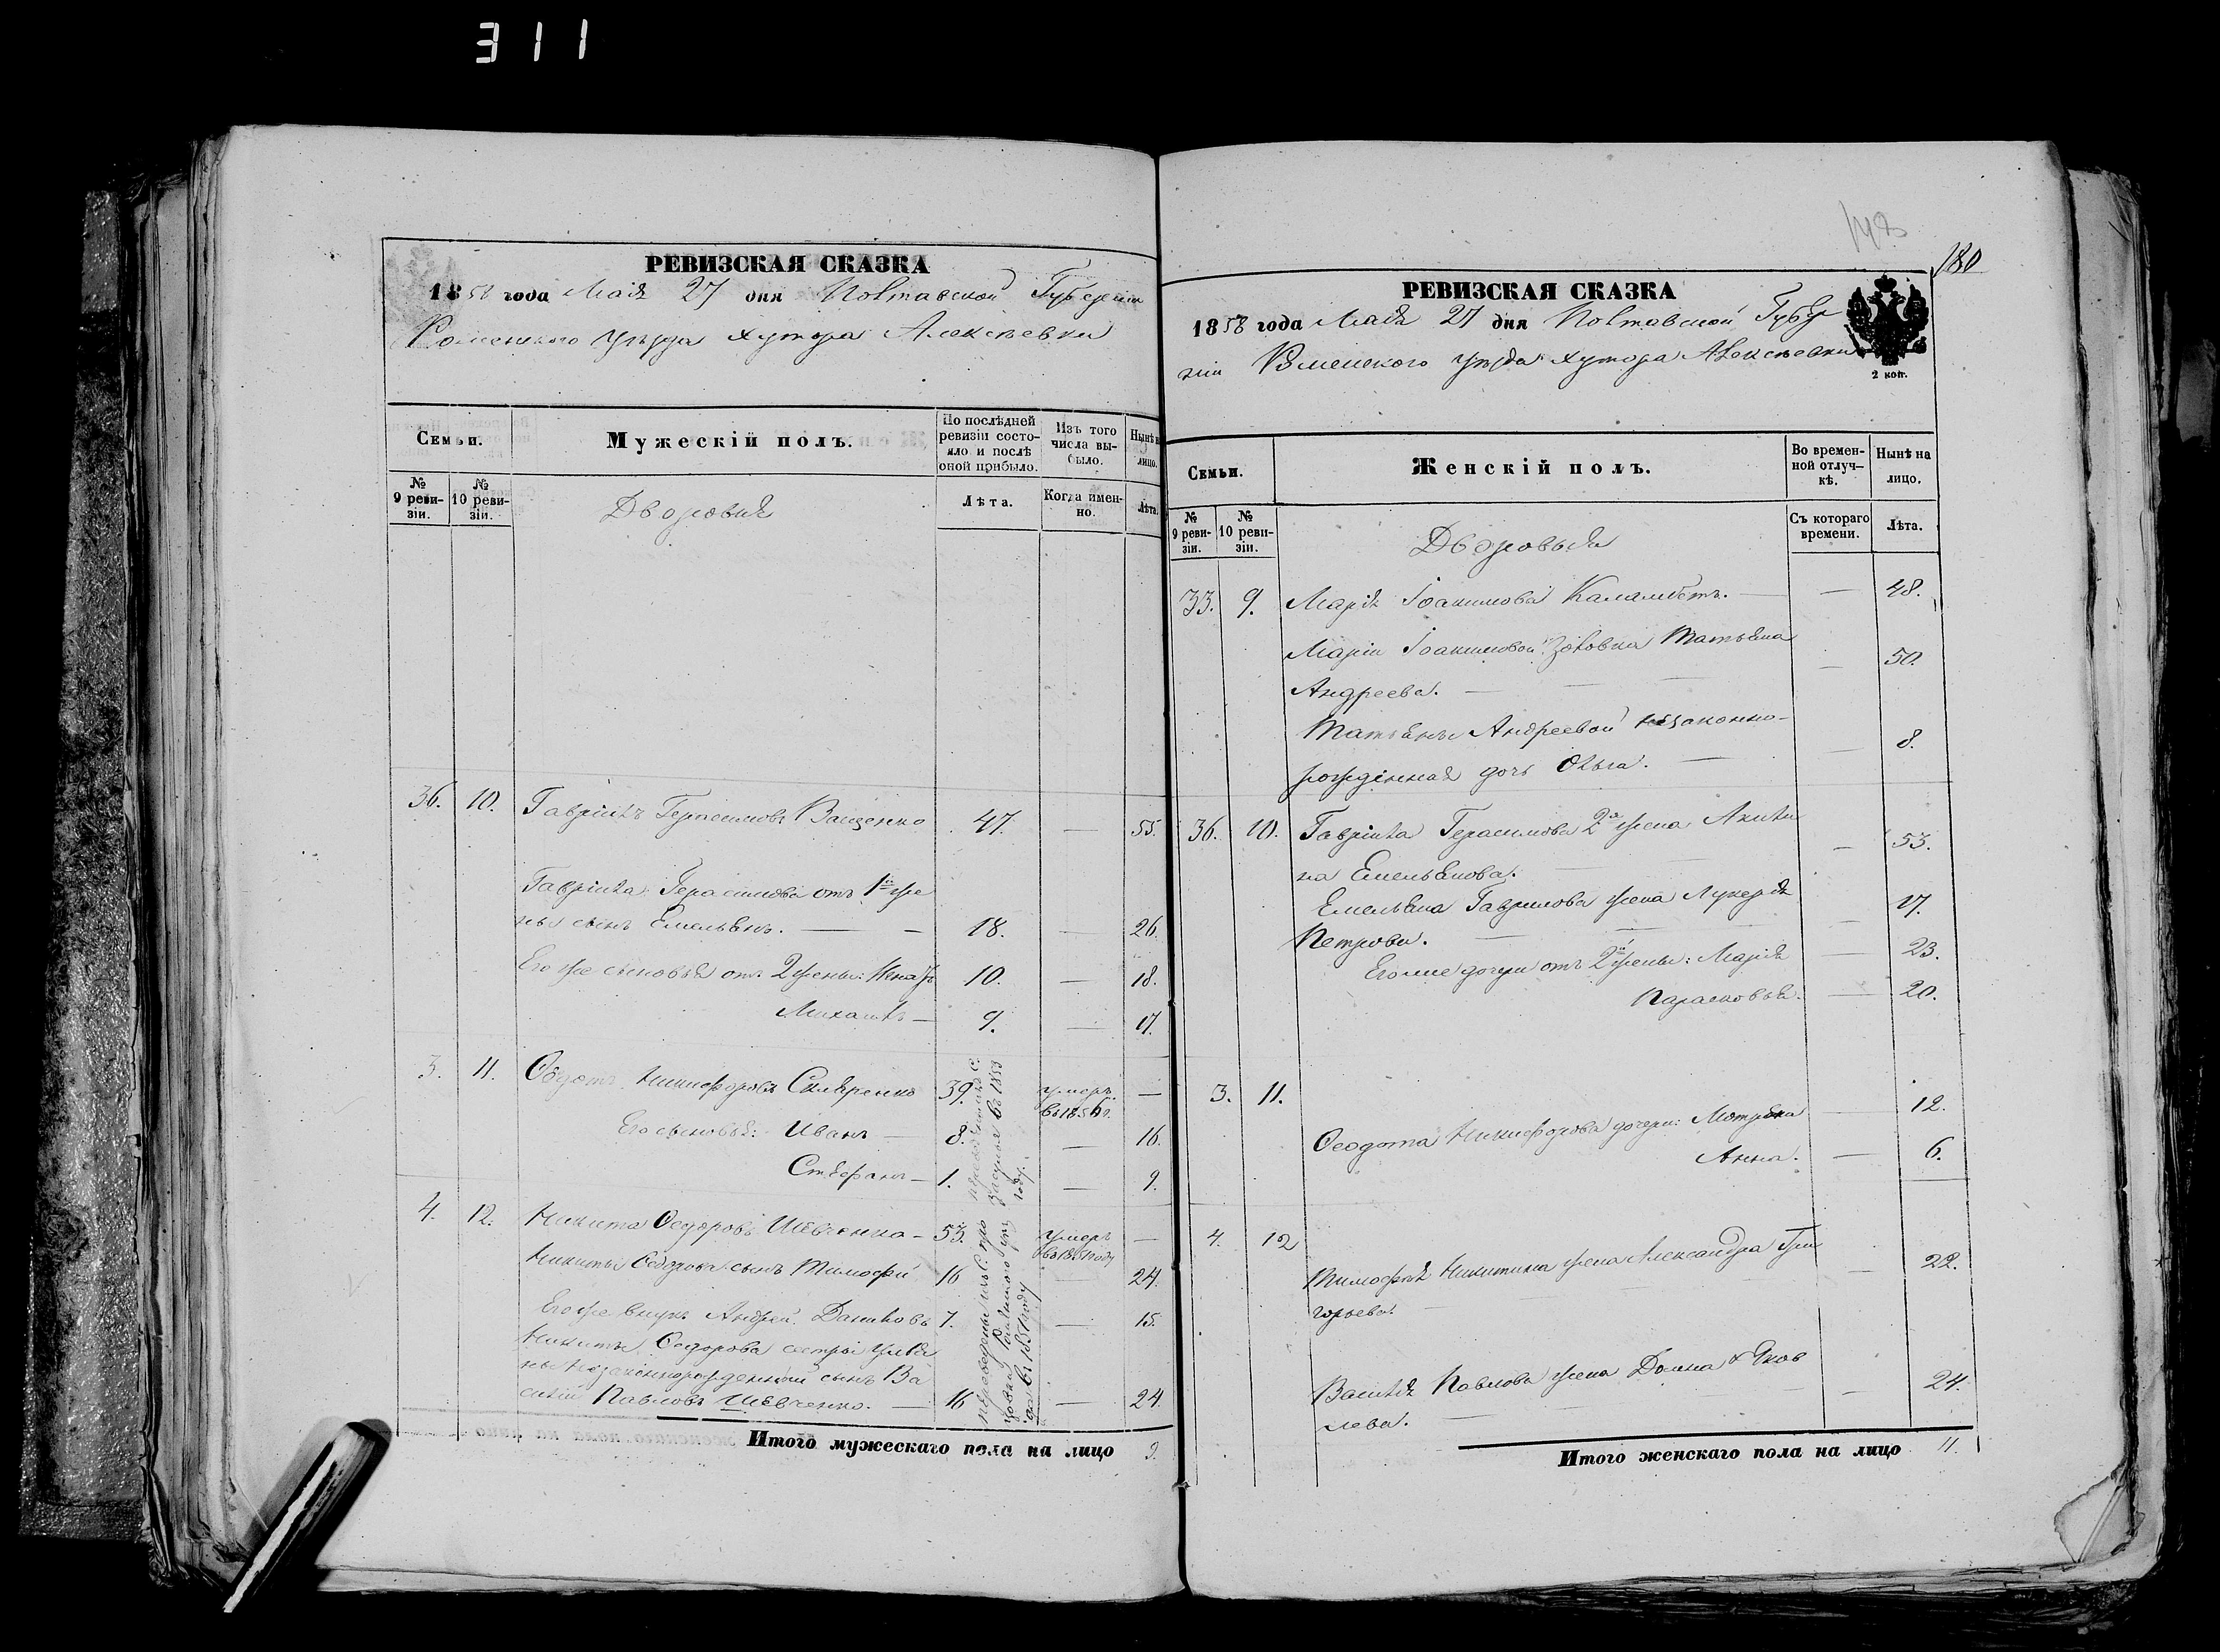 311
РЕВИЗСКАЯ СКАЗКА
1858 года Мая 27 дня Полтавской Губерніи
Роменского уѣзда хутора Алексѣевки
Семьи.
Мужескій полъ.
По послѣдней ревизіи состояло и послѣ оной прибыло.
Изъ того числа выбыло.
Нынѣ на лицо.
№ 9 ревизіи.
№ 10 ревизіи.
Дворовыя
Лѣта.
Когда именно.
Лѣта.
36. 10. Гавріилъ Герасимовъ Ващенко 47. — 55.
Гавріила Герасимова отъ 1й же
ны сынъ Емельянъ. — — 18. — 26.
Его же сыновья отъ 2 жены: 10. — 18.
Михаилъ — 9. — 17.
3. 11. Ѳедотъ Никифоровъ Скляренко 39. умеръ въ 1856 г. —
Его сыновья: Иванъ — 8. — 16.
Стефанъ — 1. — 9.
въ 1853 году.
4. 12. Никита Ѳедоровъ Шевченко — 53. умеръ въ 1851 году —
Никиты Ѳедорова сынъ Тимофей 16 — 24.
Его же внукъ Андрей Даниловъ 7. — 15.
Никиты Ѳедорова сестры Улья
ны незаконнорожденный сынъ Ва
силій Павловъ Шевченко. — 16 — 24.
переведены изъ с.
Роменского уѣз
да въ 1851 году
Итого мужескаго пола на лицо 9.
180
РЕВИЗСКАЯ СКАЗКА
1858 года Мая 27 дня Полтавской Губер
ніи Роменского уѣзда хутора Алексѣевки
2 коп.
Семьи.
Женскій полъ.
Во временной отлучкѣ.
Нынѣ на лицо.
№ 9 ревизіи.
№ 10 ревизіи.
Дворовыя
Съ котораго времени.
Лѣта.
33. 9. Марія Іоакимова Каламбетъ. — — 48.
Маріи Іоакимовой золовка Татьяна
Андреева. — — — — 50.
Татьяны Андреевой незаконно-
рожденная дочь Ольга. — — 8.
36. 10. Гавріила Герасимова 2я жена Акили
на Емельянова. — — 53.
Емельяна Гаврилова жена Лукерья
Петрова. — — — 17.
Его же дочери отъ 2й жены: Марія — 23.
Парасковья. — 20.
3. 11.
Ѳеодота Никифорова дочери: Мотрона — 12.
Анна. — 6.
4. 12
Тимофея Никитина жена Александра Гри
горьева. — — 22.
Василія Павлова жена Домна Яков
лева. — — 24.
Итого женскаго пола на лицо 11.